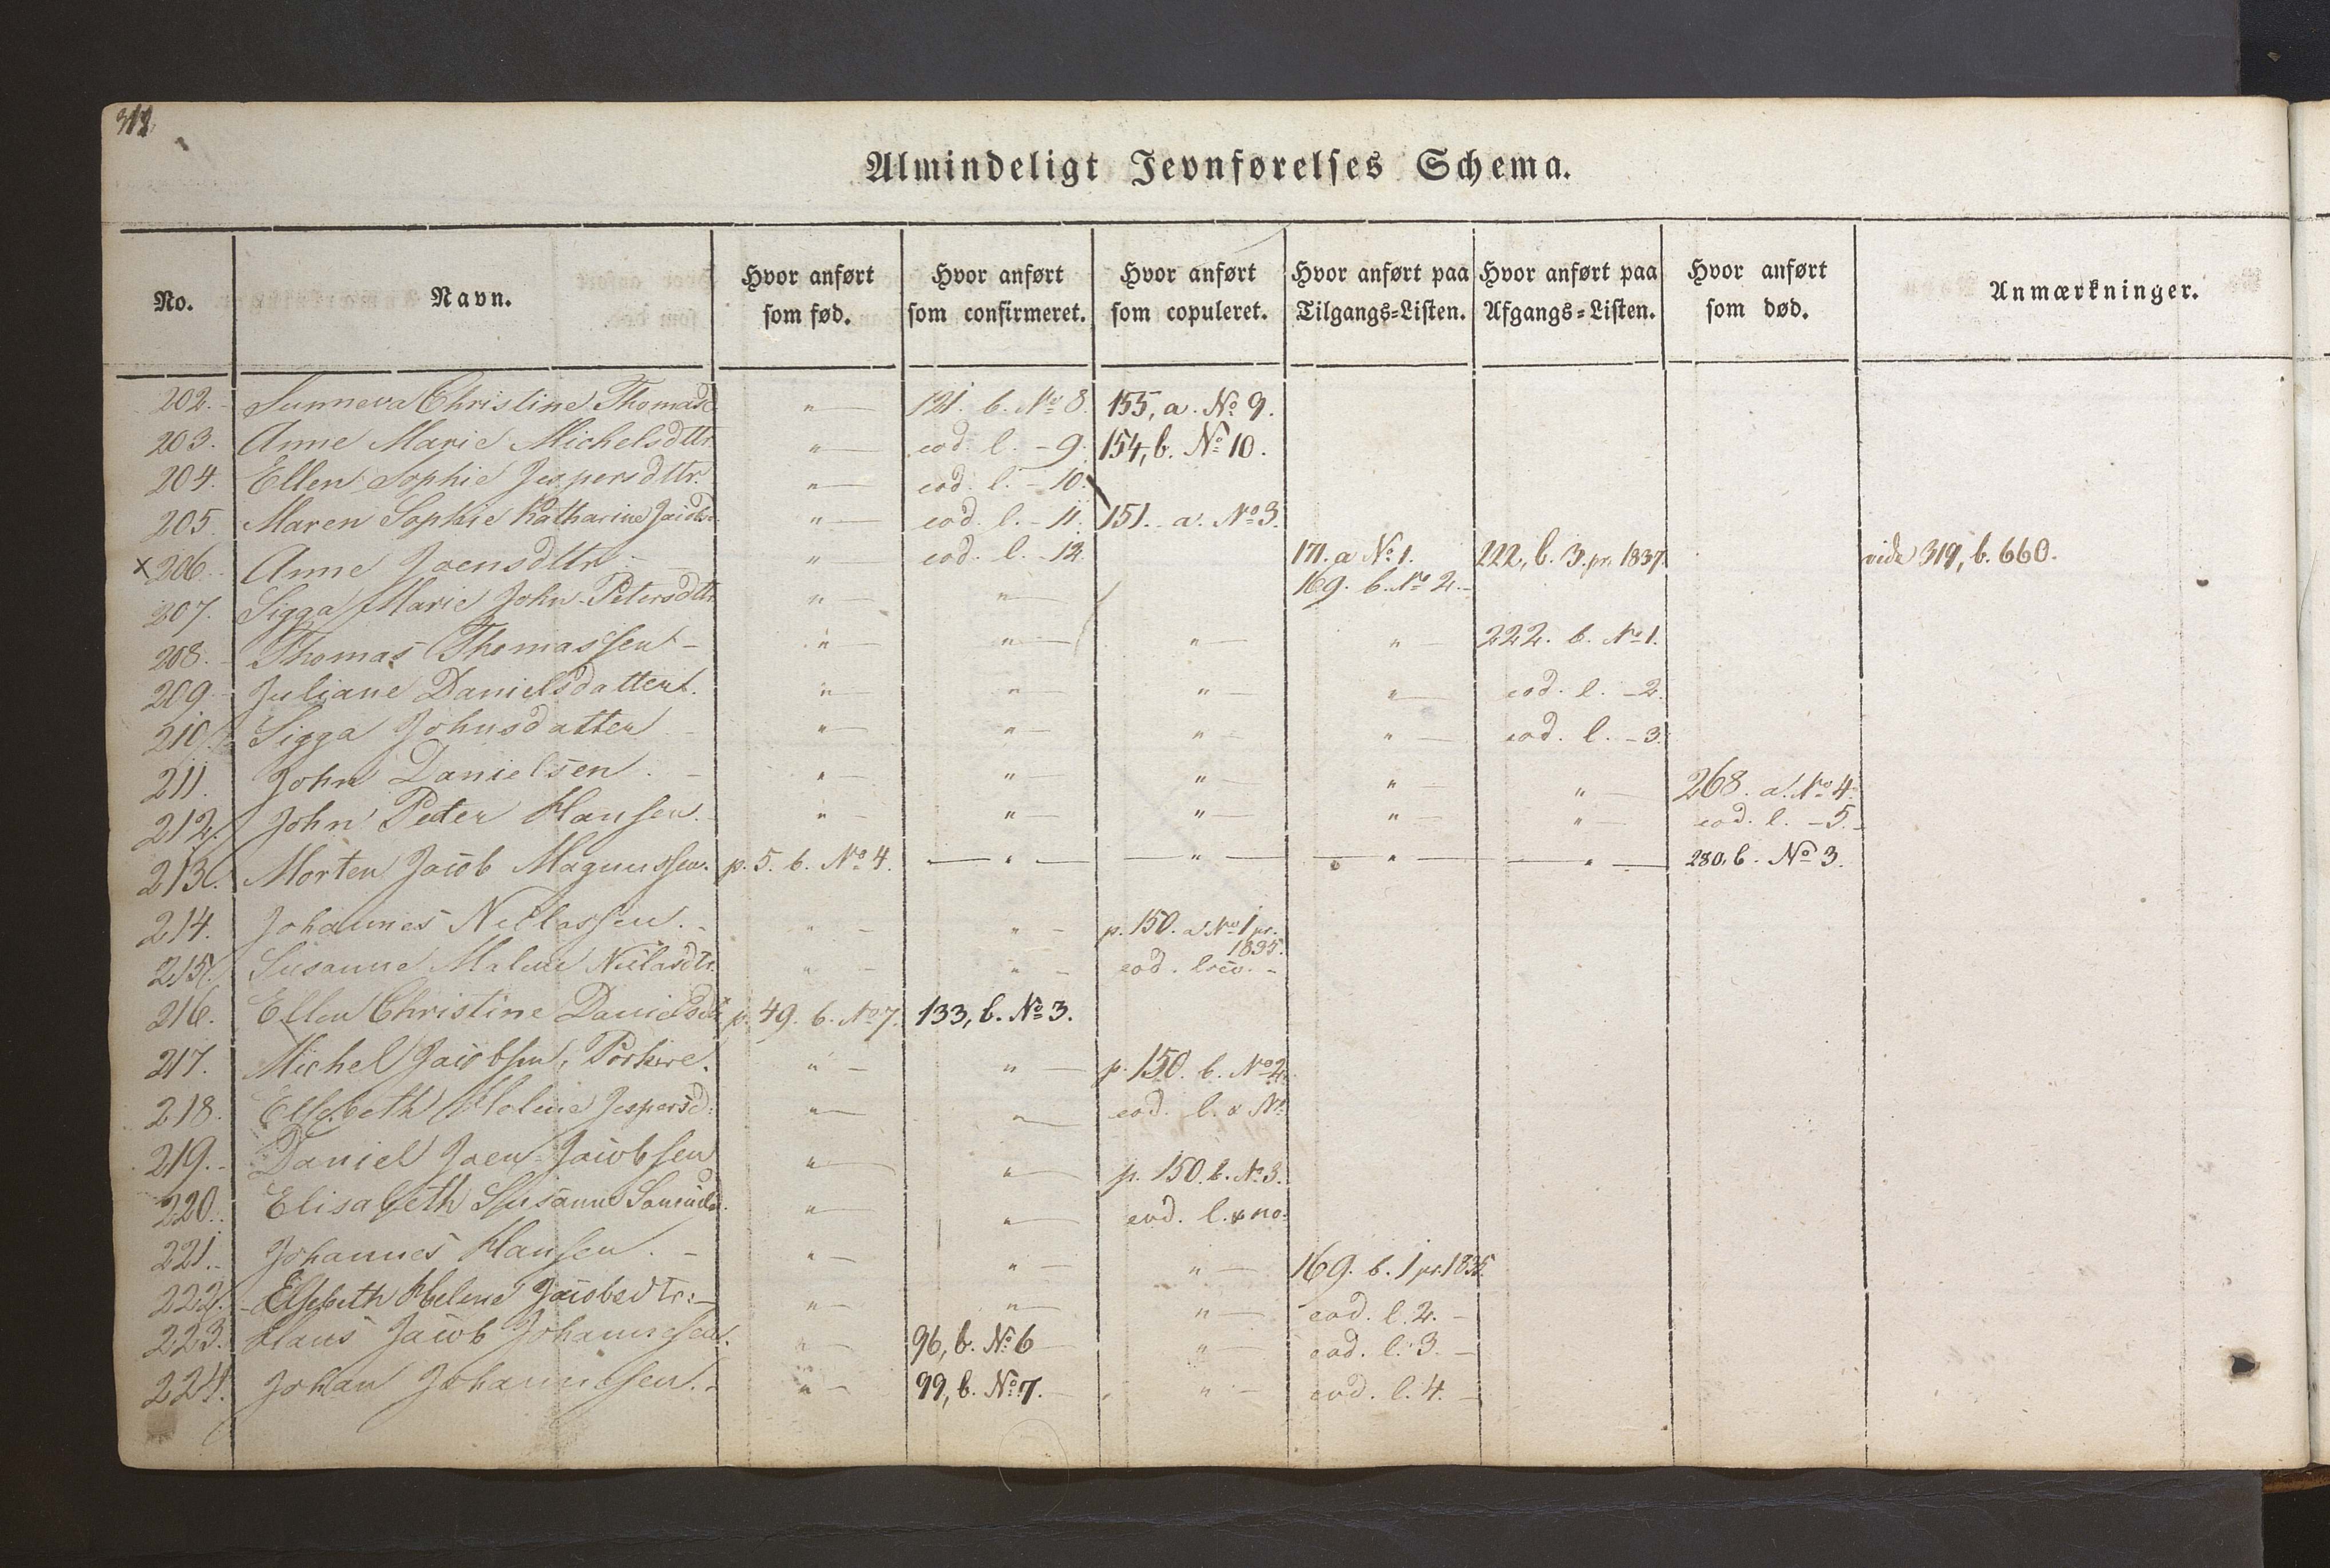 Almindeligt Jevnførelses Schema.
No. Navn. Hvor anført som fød. Hvor anført som confirmeret. Hvor anført som copuleret. Hvor anført paa Tilgangs-Listen. Hvor anført paa Afgangs-Listen. Hvor anført som død. Anmærkninger.
202. Sunneva Christine Thomasd. " 121. b. No 8. 155, a. No 9.
203. Anne Marie Michelsdttr " eod. l. - 9. 154, b. No 10.
204. Ellen Sophie Jespersdttr. " eod. l. - 10.
205. Maren Sophie Katharine " eod. l. - 11. 151. a. No 3.
x 206. Anne Joensdttr " eod. l. - 12. 171. a No 1. 222, b. 3. pr. 1837. vide 319, b. 660.
207. Sigga Marie John-Petersdttr " " 169. b. No 2. -
208. Thomas Thomassen - " " " " 222. b. No 1.
209. Juliane Danielsdatter. " " " " eod. l. - 2.
210. Sigga Johnsdatter - " " " " eod. l. - 3.
211. John Danielsen. - " " " " " 268. a. No 4.
212. John Peter Hansen. " " " " " eod. l. - 5. -
213. Morten Jacob Magnussen. p. 5. b. No 4. " " " " 280, b. No 3.
214. Johannes Niclassen. - " " p. 150. a No 1 pr. 1835.
215. Susanne Malene Niclasdtr. " " eod. loco. -
216. Ellen Christine Danielsdr p. 49. b. No 7. 133, b. No 3.
217. Michel Jacobsen, Porkere. " " p. 150. b. No 2.
218. Elsebeth Malene Jespersd: " " eod. l. & No
219. - Daniel Joen Jacobsen " " p. 150. b. No 3.
220. Elisabeth Susanne " " eod. l. & no.
221. - Johannes Hansen. - " " " 169. b. 1 pr. 1835.
222. - Elsebeth Helene Jacobsdtr: - " " " eod. l. 2. -
223. Hans Jacob Johannesen. " 96, b. No 6 " eod. l. 3. -
224. Johan Johannesen. - " 99, b. No 7. " eod. l. 4. -